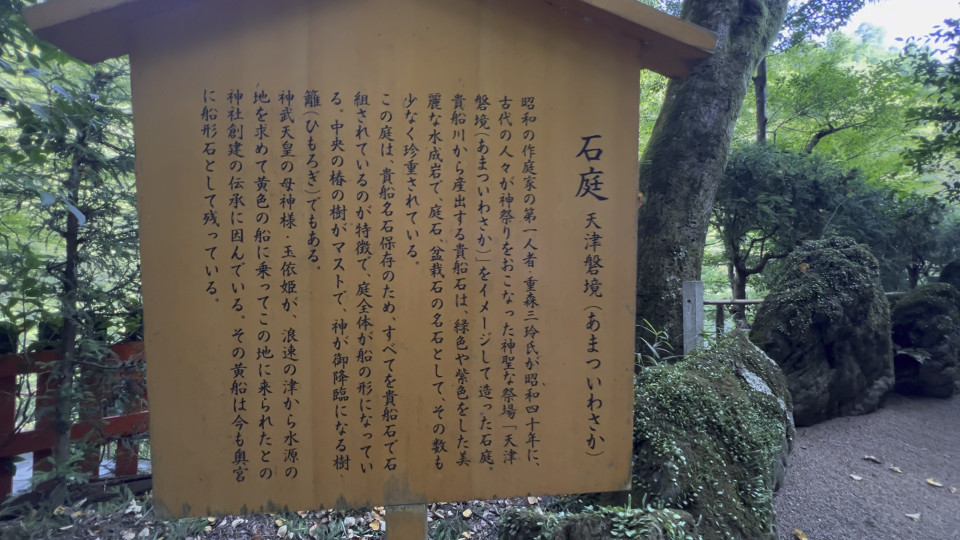 石庭 天津磐境（あまついわさか）
昭和の作庭家の第一人者・重森三玲氏が、昭和四十年に、
古代の人々が神祭りをおこなった神聖な祭場「天津
磐境（あまついわさか）」をイメージして造った石庭。
貴船川から産出する貴船石は、緑色や紫色をした美
麗な水成岩で、庭石、盆栽石の名石として、その数も
少なく珍重されている。
この庭は、貴船名石保存のため、すべてを貴船石で石
組されているのが特徴で、庭全体が船の形になってい
る。中央の椿の樹がマストで、神が御降臨になる樹
籬（ひもろぎ）でもある。
神武天皇の母神様・玉依姫が、浪速の津から水源の
地を求めて黄色の船に乗ってこの地に来られたとの
神社創建の伝承に因んでいる。その黄船は今も奥宮
に船形石として残っている。